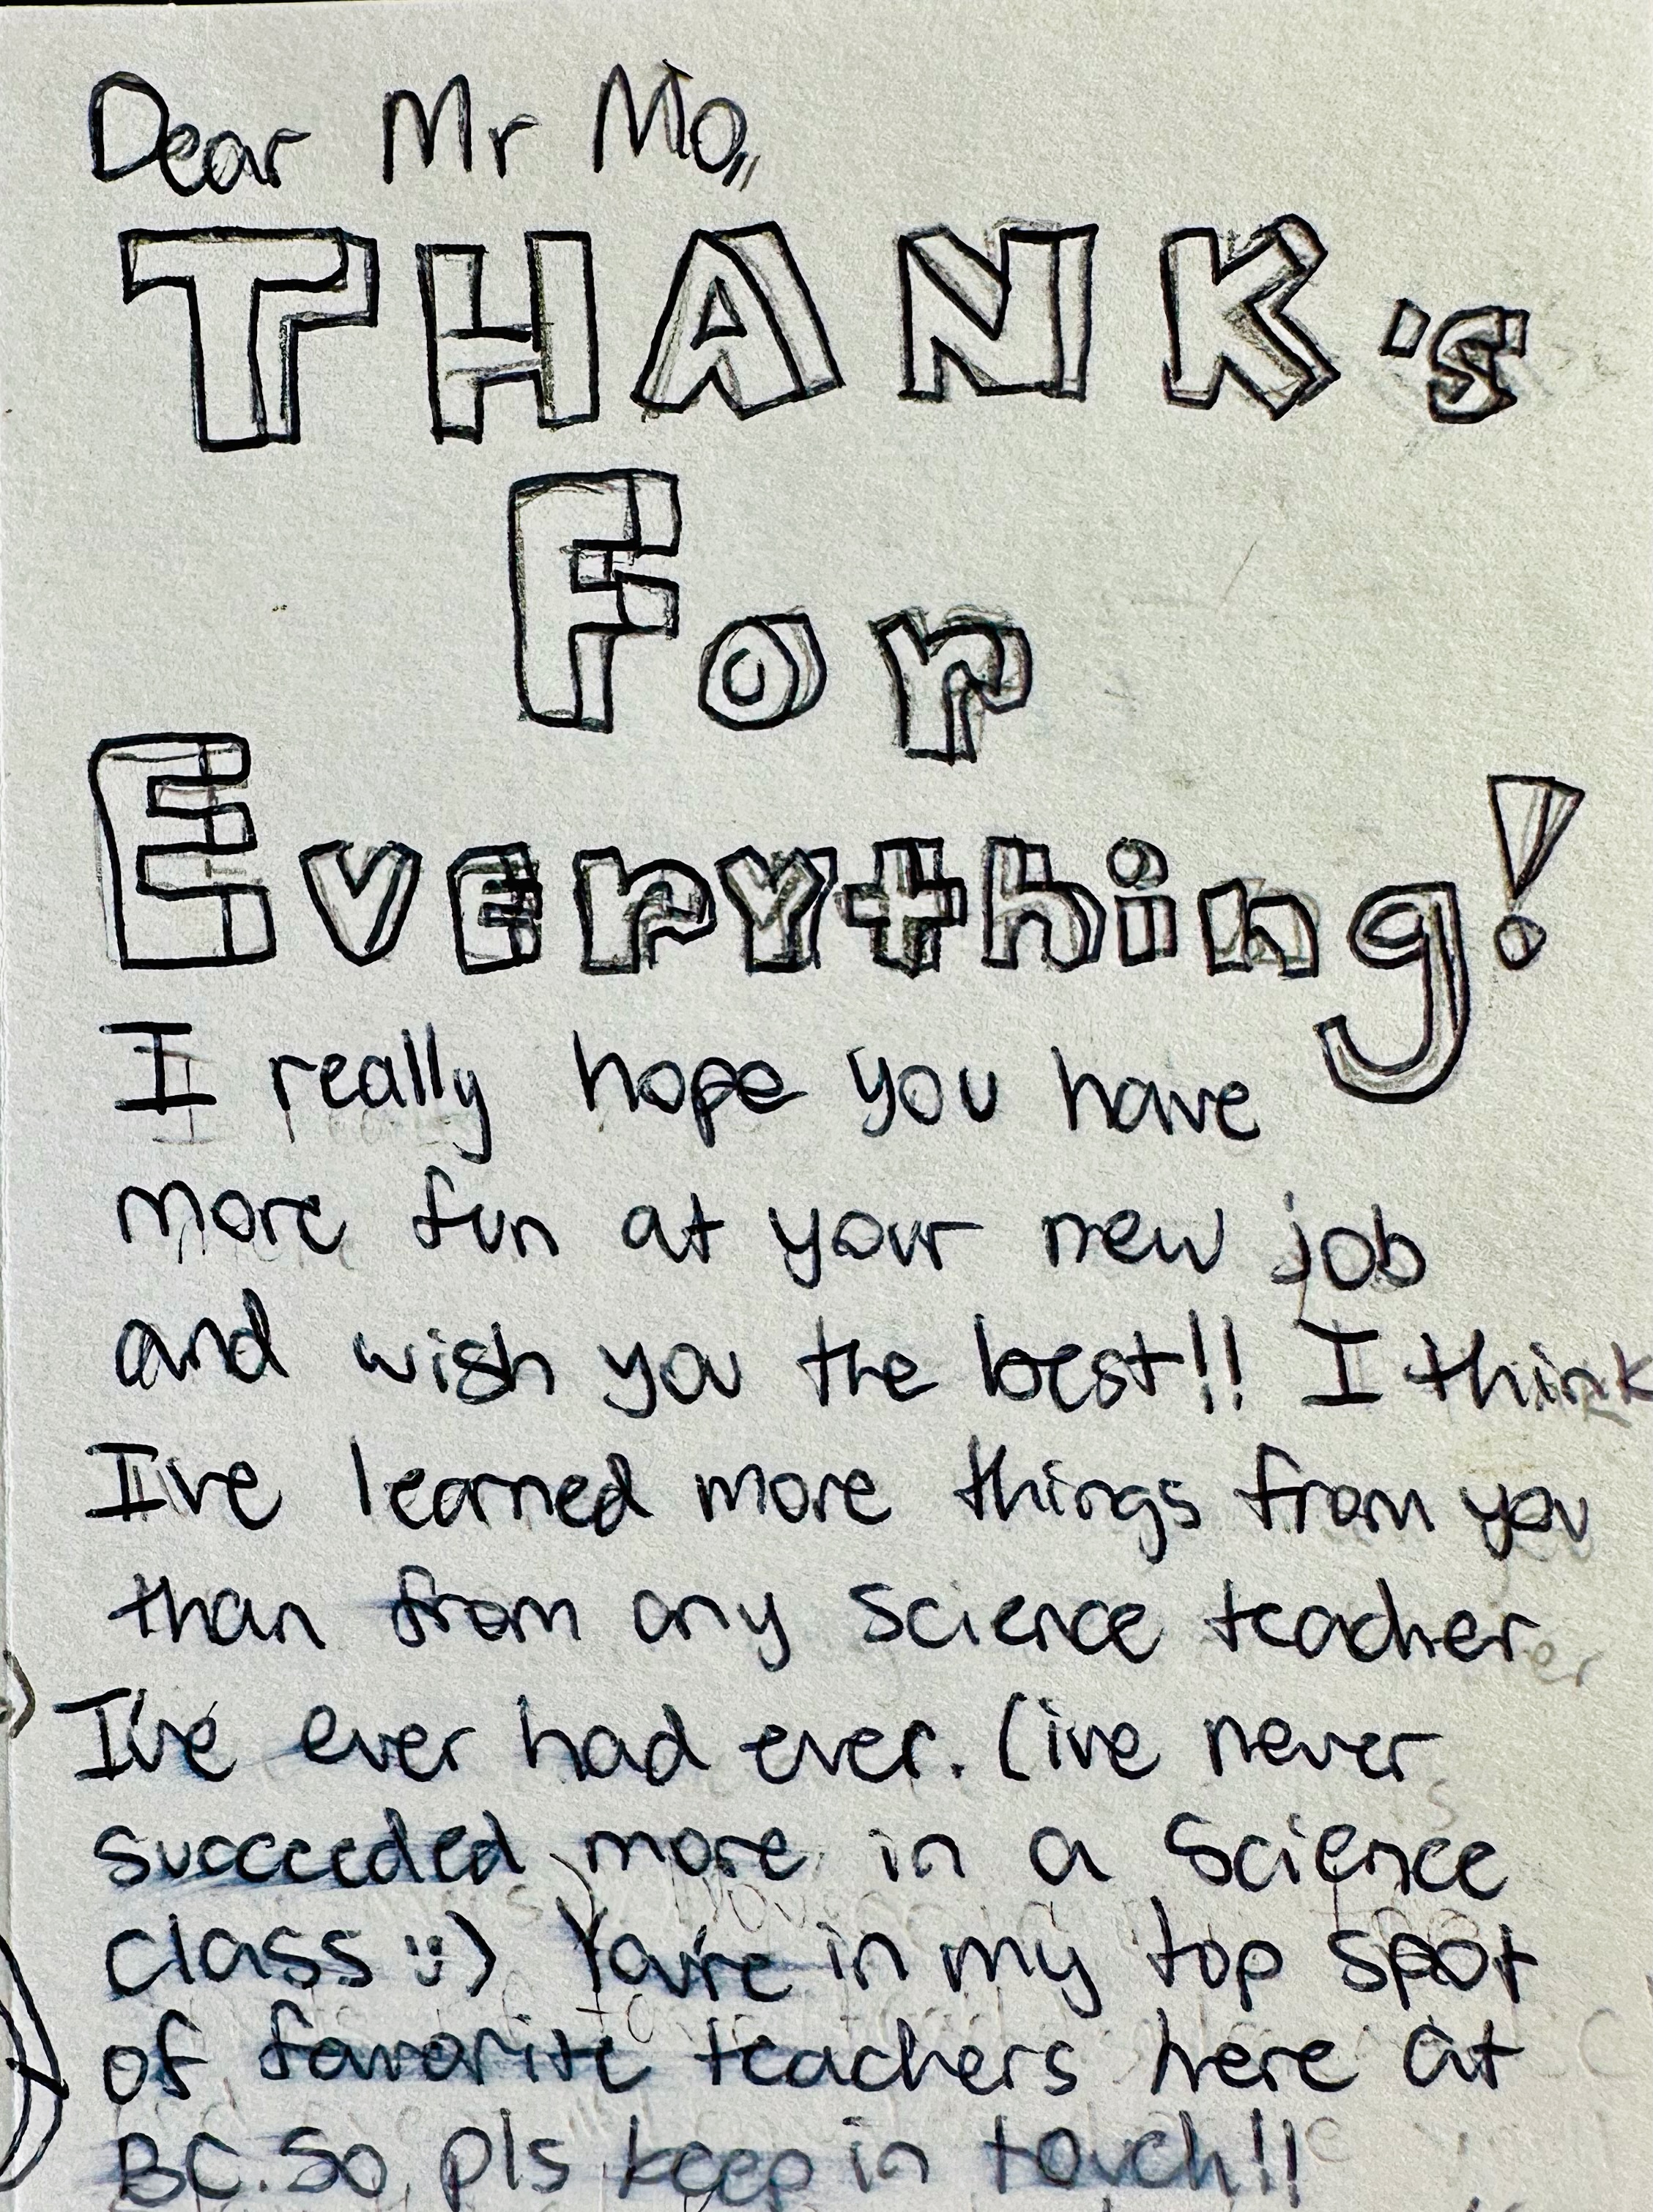 Dear Mr Mo,,
THANK's
For
Everything!
I really hope you have
more fun at your new job
and wish you the best!! I think
I've learned more things from you
than from any Science teacher
I've ever had ever. (ive never
succeeded more in a Science
class :)) You're in my top spot
of favorite teachers here at
BC. So pls keep in touch!!